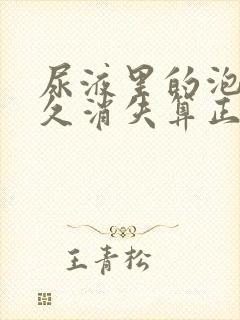 尿液里的泡
久消失算正
王青松